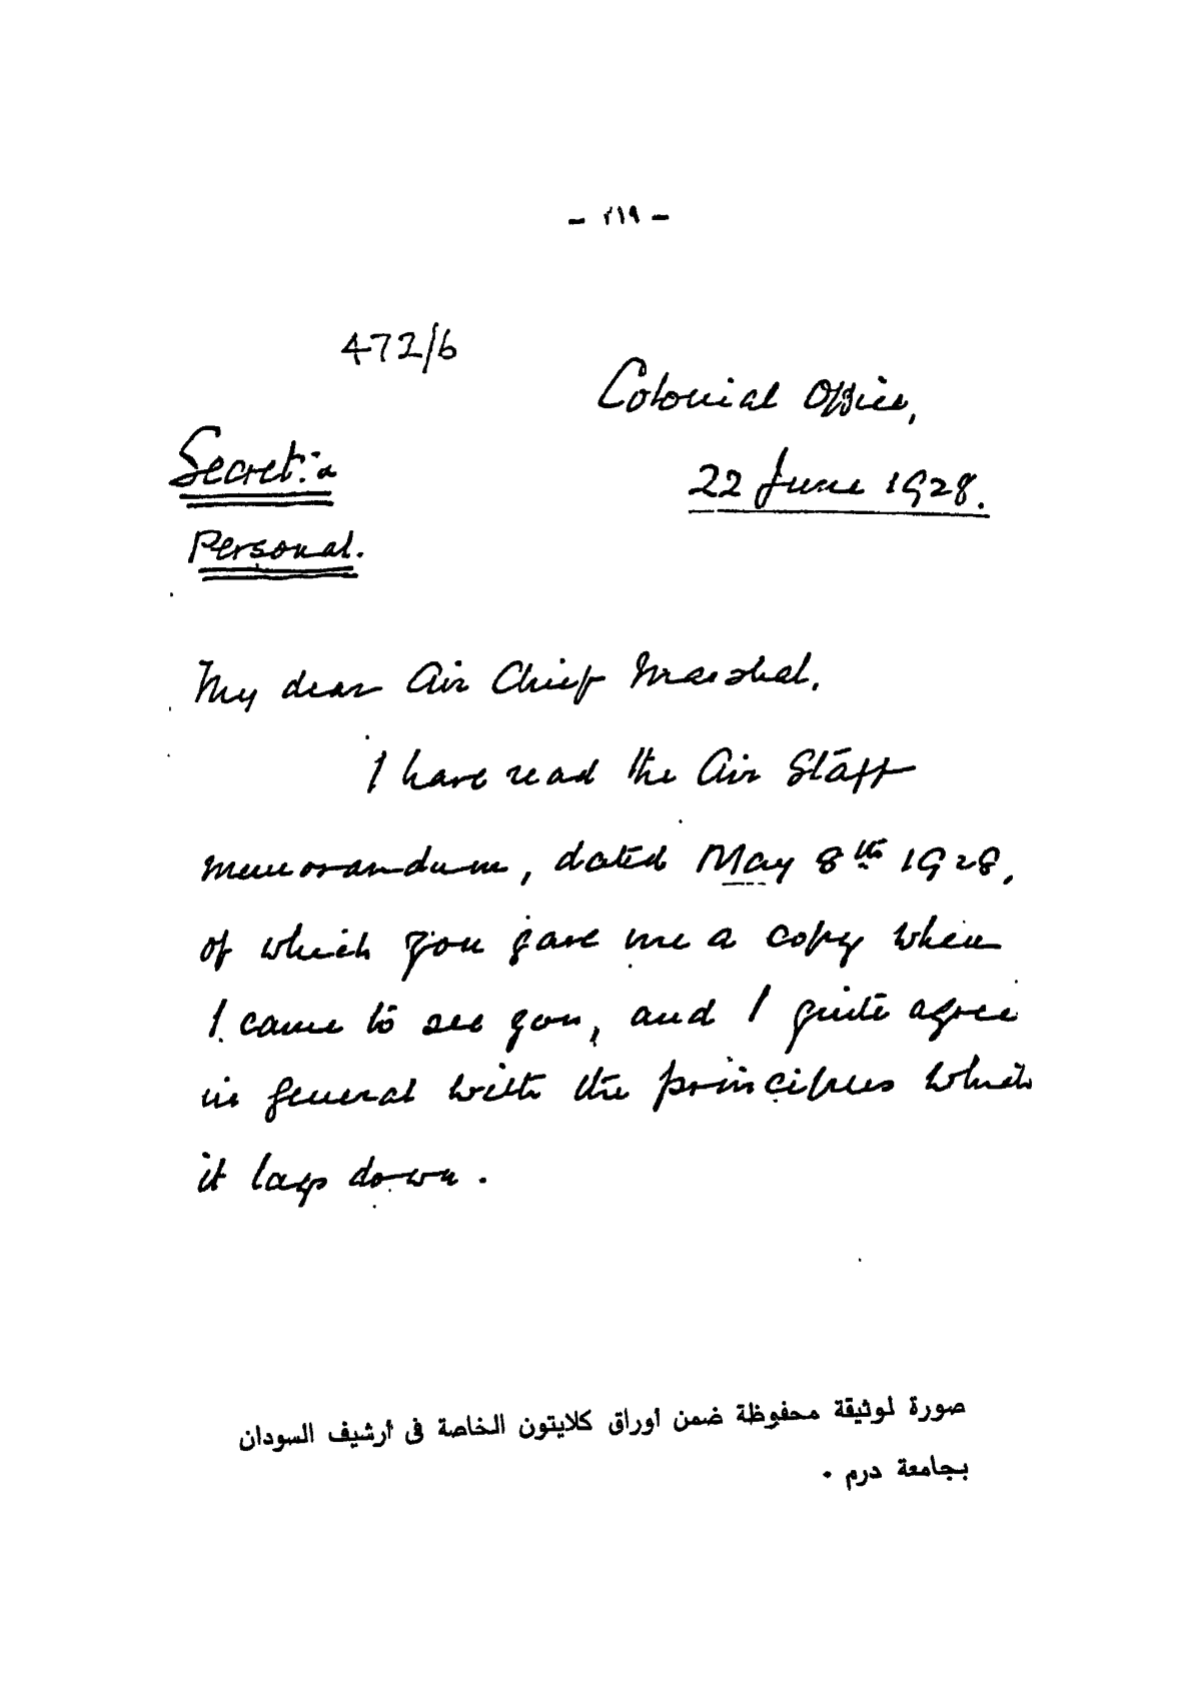 - ٢١٩ -
472/6
Colonial Office,
Secret: &
22 June 1928.
Personal.
My dear Air Chief Marshal.
I have read the Air Staff
memorandum, dated May 8th 1928,
of which you gave me a copy when
I came to see you, and I quite agree
in general with the principles which
it lays down.
صورة لوثيقة محفوظة ضمن أوراق كلايتون الخاصة فى أرشيف السودان
بجامعة درم .